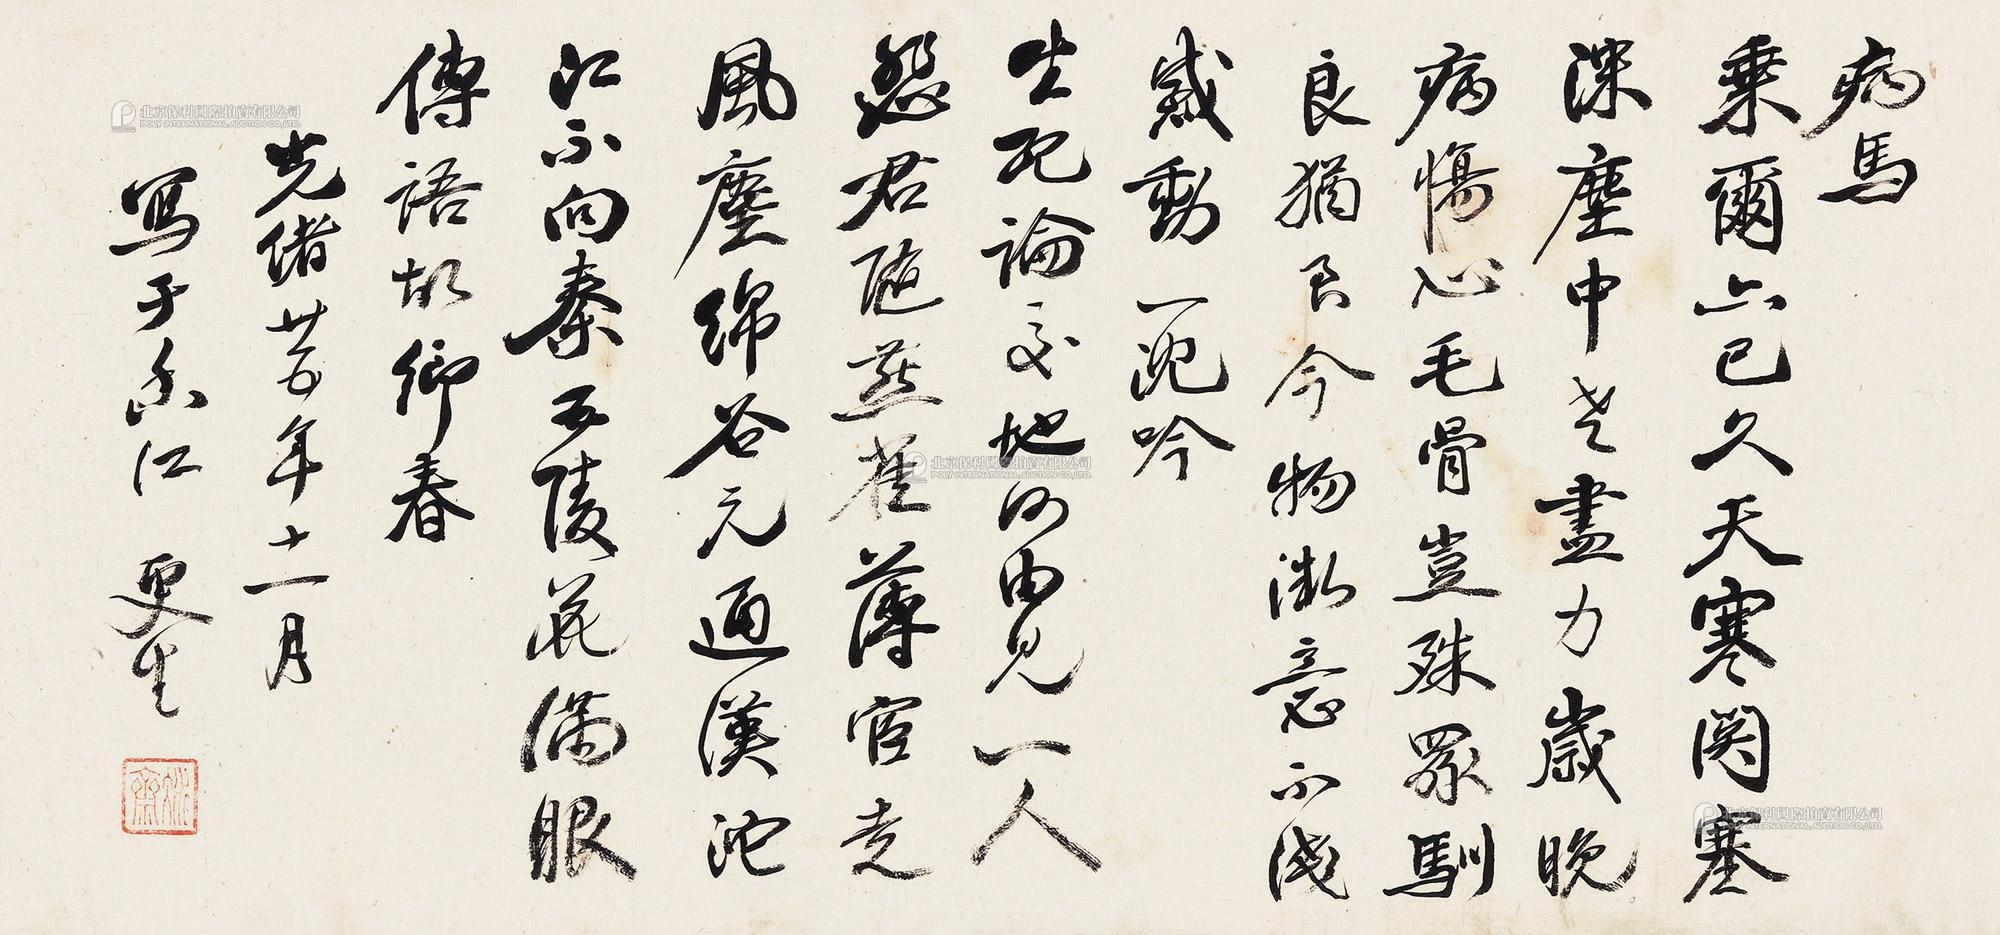 病馬
乘爾亦已久天寒関塞
深塵中老盡力歲晚
病傷心毛骨豈殊眾馴
良猶良今物微意不淺
感動一沈吟
生死論交地何由見一人
悲君隨燕雀薄宦走
風塵綿谷元通漢沱
江不向秦五陵花滿眼
傳語故鄉春
光緒廿五年十一月
寫于香江 更生
北京保利國際拍賣有限公司
POLY INTERNATIONAL AUCTION CO.,LTD.
北京保利國際拍賣有限公司
POLY INTERNATIONAL AUCTION CO.,LTD.
北京保利國際拍賣有限公司
POLY INTERNATIONAL AUCTION CO.,LTD.